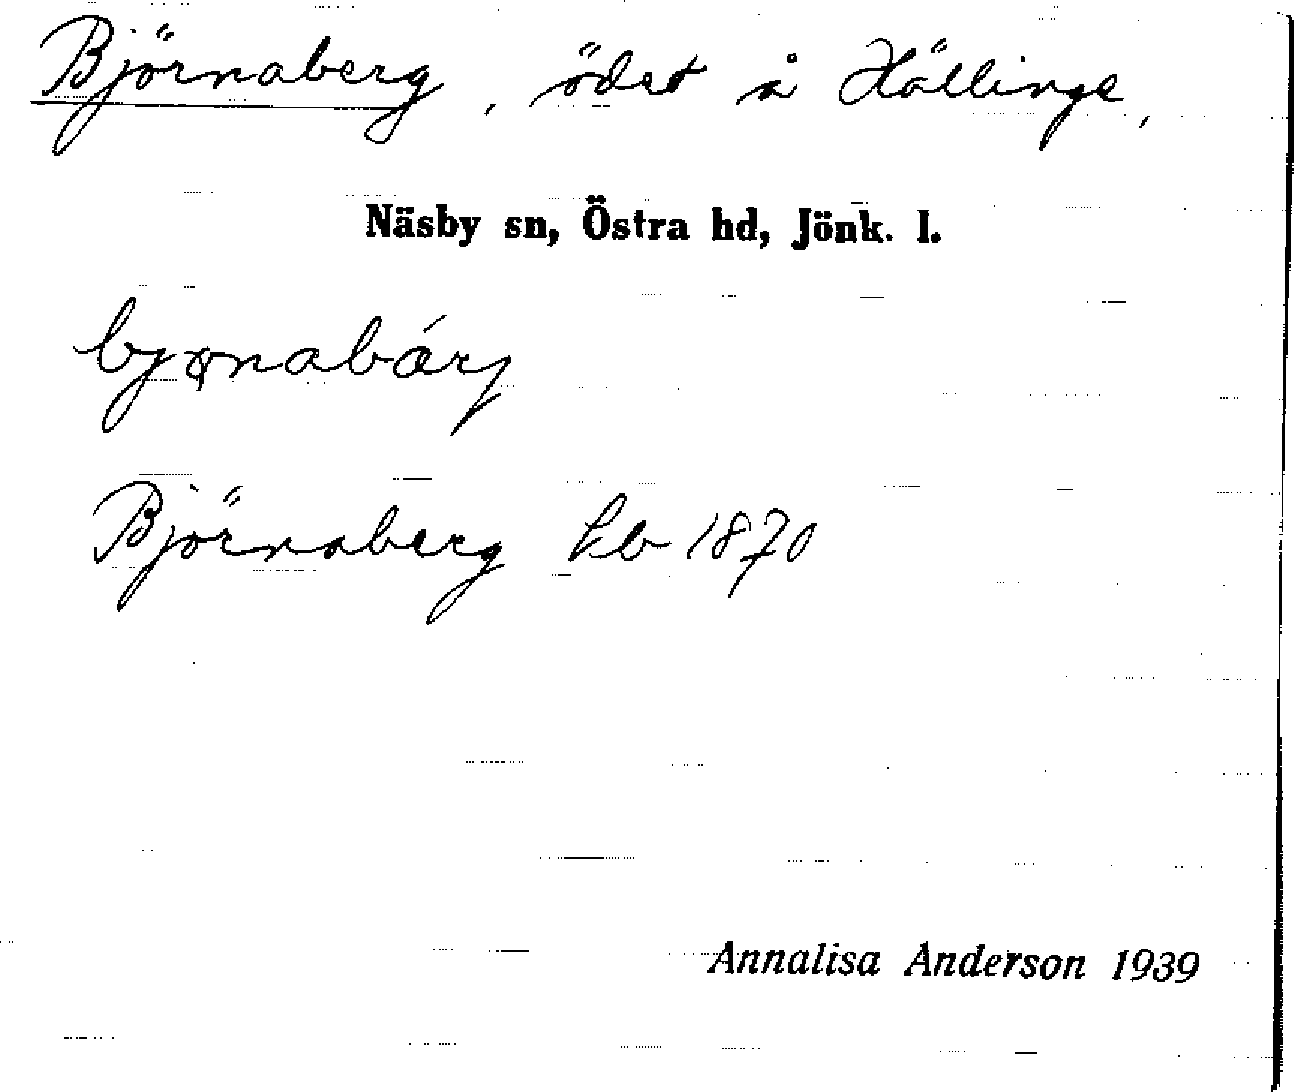 Björnaberg, ödet å Hällinge,
Näsby sn, Östra hd, Jönk. l.
bjønabárj
Björnaberg hb 1870
Annalisa Anderson 1939